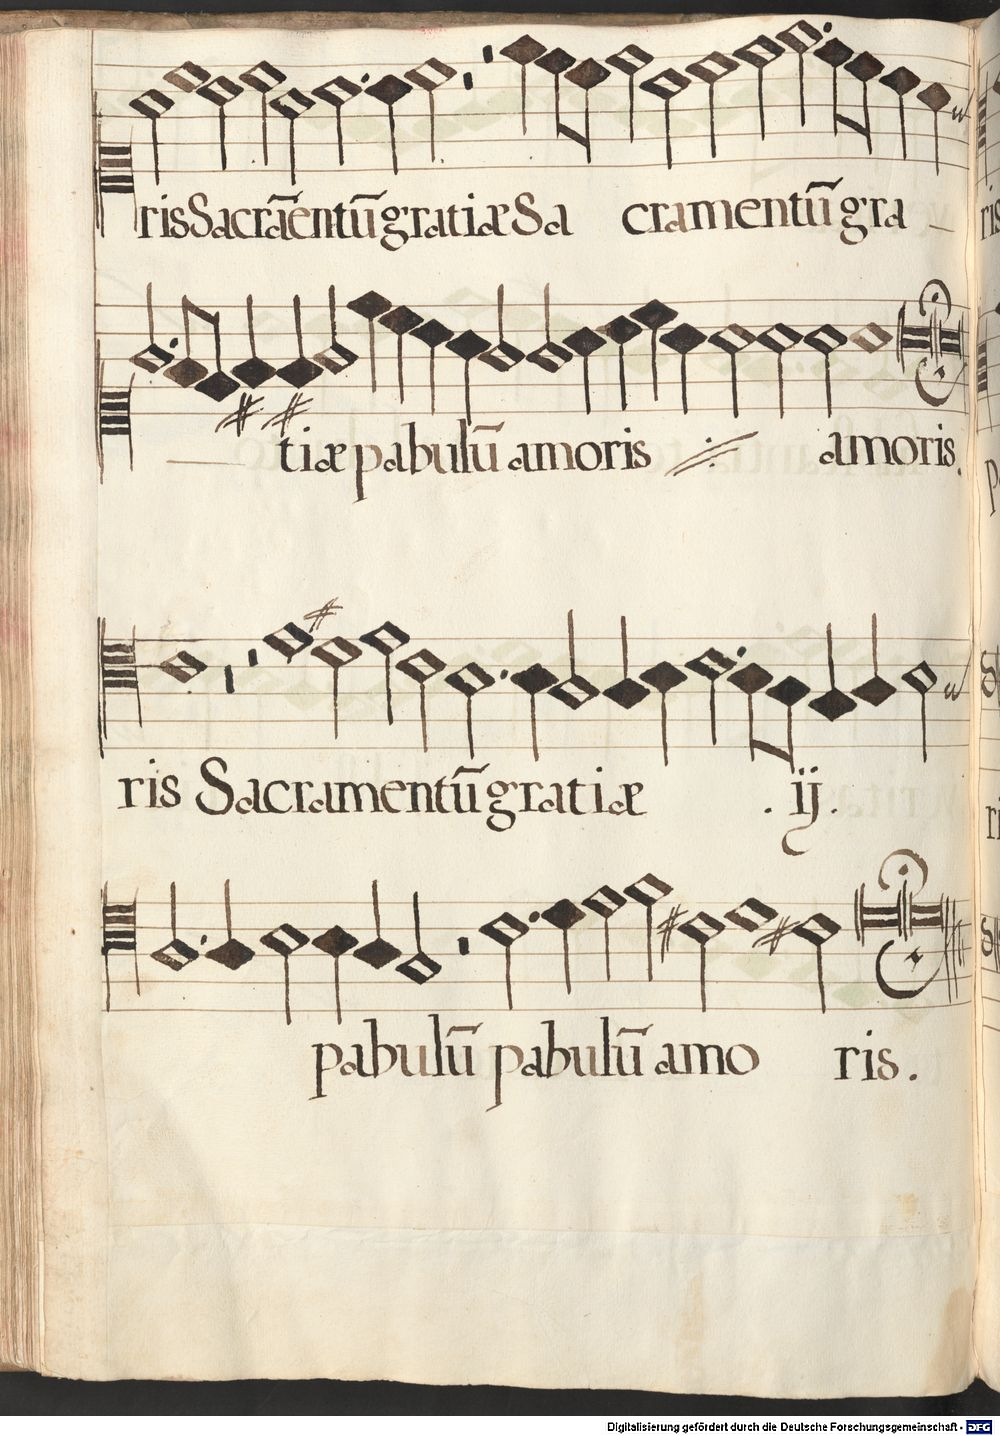 risSacrāentūgratiæSa cramentūgra
tiæ pabulū amoris ·//· amoris.
ris Sacramentūgratiæ .ij.
pabulū pabulū amo ris.
Digitalisierung gefördert durch die Deutsche Forschungsgemeinschaft - DFG